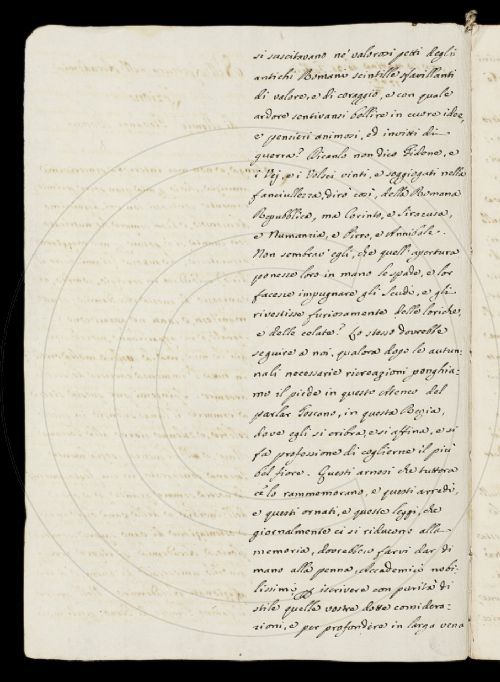 si suscitavano ne' valorosi petti degli
antichi Romani scintille sfavillanti
di valore, e di coraggio, e con quale
ardore sentivansi bollire in cuore idee,
e pensieri animosi, ed invitti di
guerra? Dicanlo non dico Fidene, e
i Vej, e i Volsci vinti, e soggiogati nella
fanciullezza, dirò così, della Romana
Repubblica, ma Corinto, e Siracusa,
e Numanzia, e Pirro, e Annibale.
Non sembrav' egli, che quell' apertura
ponesse loro in mano le spade, e lor
facesse impugnare gli Scudi, e gli
rivestisse furiosamente delle loriche,
e delle celate? Lo stesso dovrebbe
seguire a noi, qualora dopo le autun=
nali necessarie ricreazioni ponghia=
mo il piede in questo Ateneo del
parlar Toscano, in questa Regia,
dove egli si cribra, e si affina, e si
fa professione di coglierne il più
bel fiore. Questi arnesi che tuttora
ce lo rammemorano, e questi arredi,
e questi ornati, e queste leggi, che
giornalmente ci si riducono alla
memoria, dovrebbero farvi dar di
mano alla penna, Accademici nobi=
lissimi, iscrivere con purità di
stile quelle vostre dotte considera=
zioni, e per profondere in larga vena